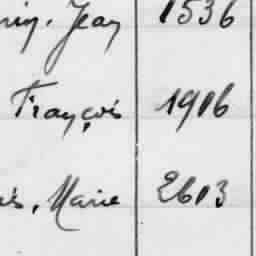 Jean 1536
François 1916
Marie 2613